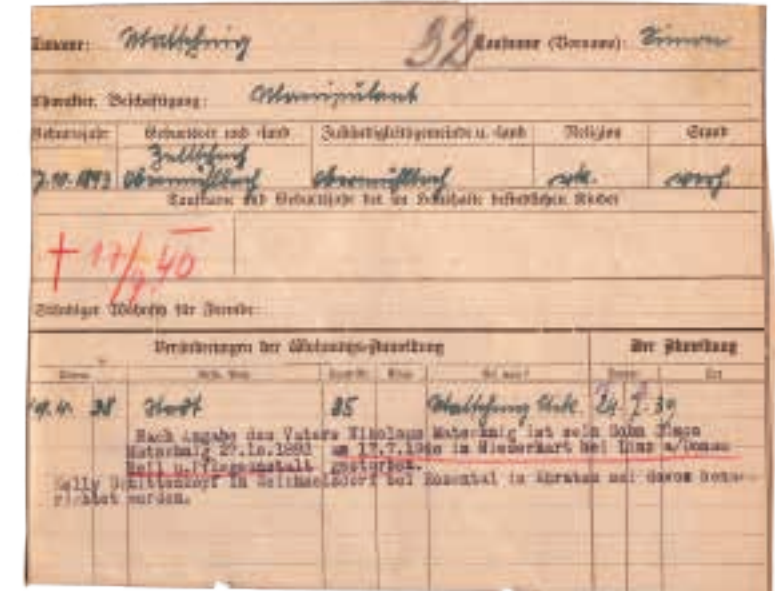 Zuname: Matschnig 32 Taufname (Vorname): Simon
Charakter, Beschäftigung: Manipulant
Geburtsjahr Geburtsort und -land Zuständigkeitsgemeinde u. -land Religion Stand
1893 Obermühlbach Obermühlbach rk. verh.
Taufname und Geburtsjahr der im Haushalte befindlichen Kinder
† 17/ 40
Ständiger Wohnsitz für Fremde:
Veränderungen der Wohnungs-Anmeldung Der Abmeldung
38 Stadt 85 Matschnig 24. 39
Nach Angabe des Vaters Nikolaus Matschnig ist sein Sohn Simon
Matschnig 27.10.1893 am 17.7.1940 in Niedernhart bei Linz a/Donau
Heil u.Pflegeanstalt gestorben.
Nelly Schittenkopf in bei Rosental in Kärnten sei davon benach-
richtet worden.